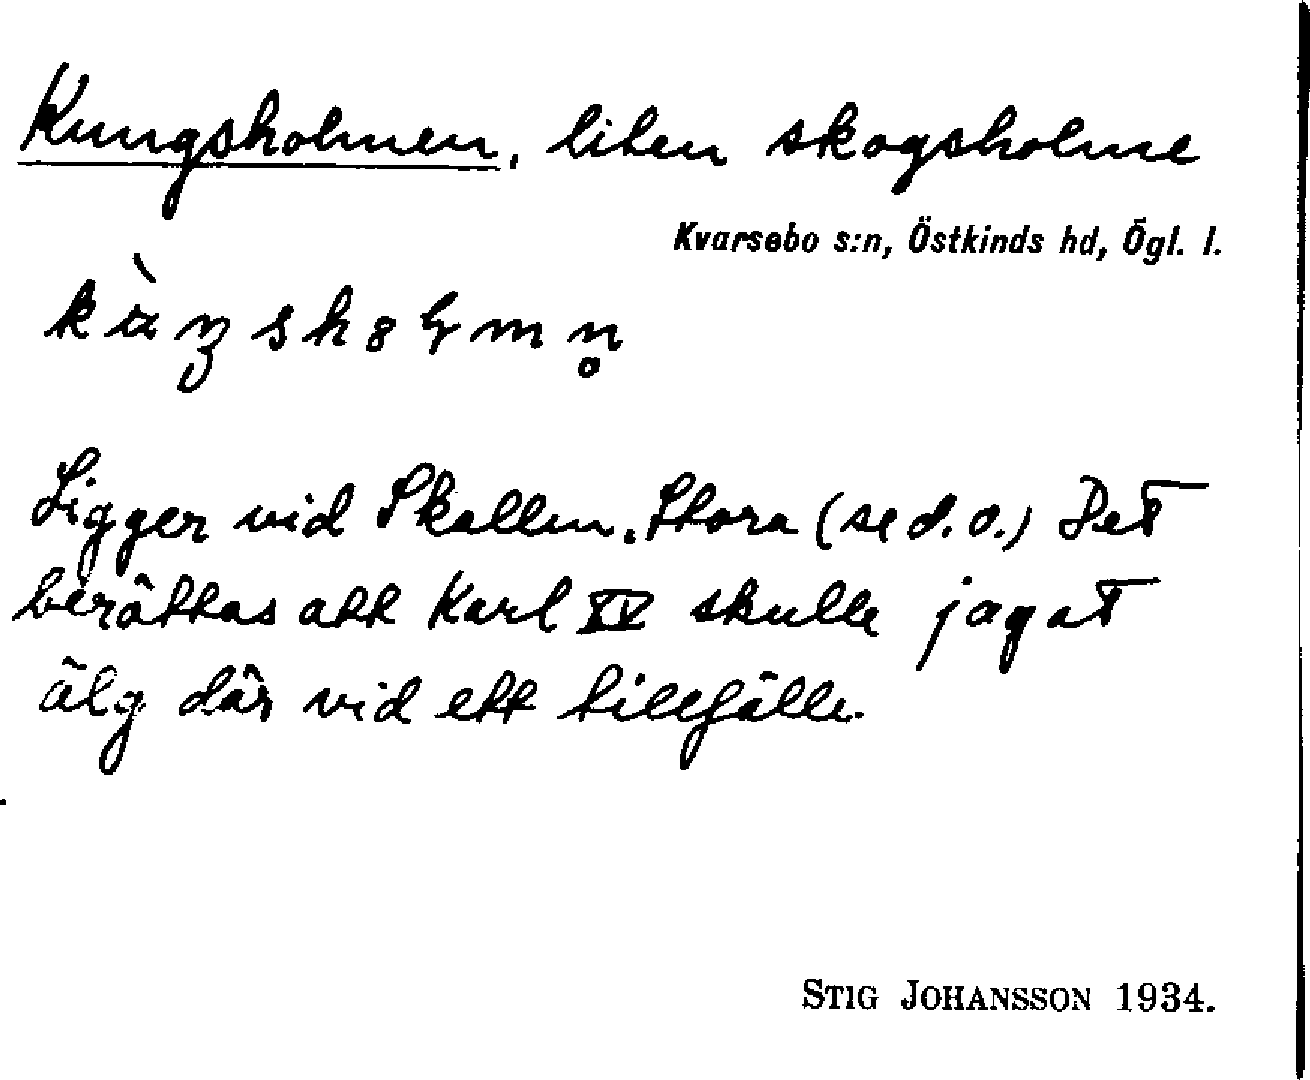 Kungsholmen, liten skogsholme
Kvarsebo s:n, Östkinds hd, Ögl. l.
Ligger vid Skallen, Stora (se d. o.) Det
berättas att Karl XV skulle jagat
älg där vid ett tillfälle.
STIG JOHANSSON 1934.